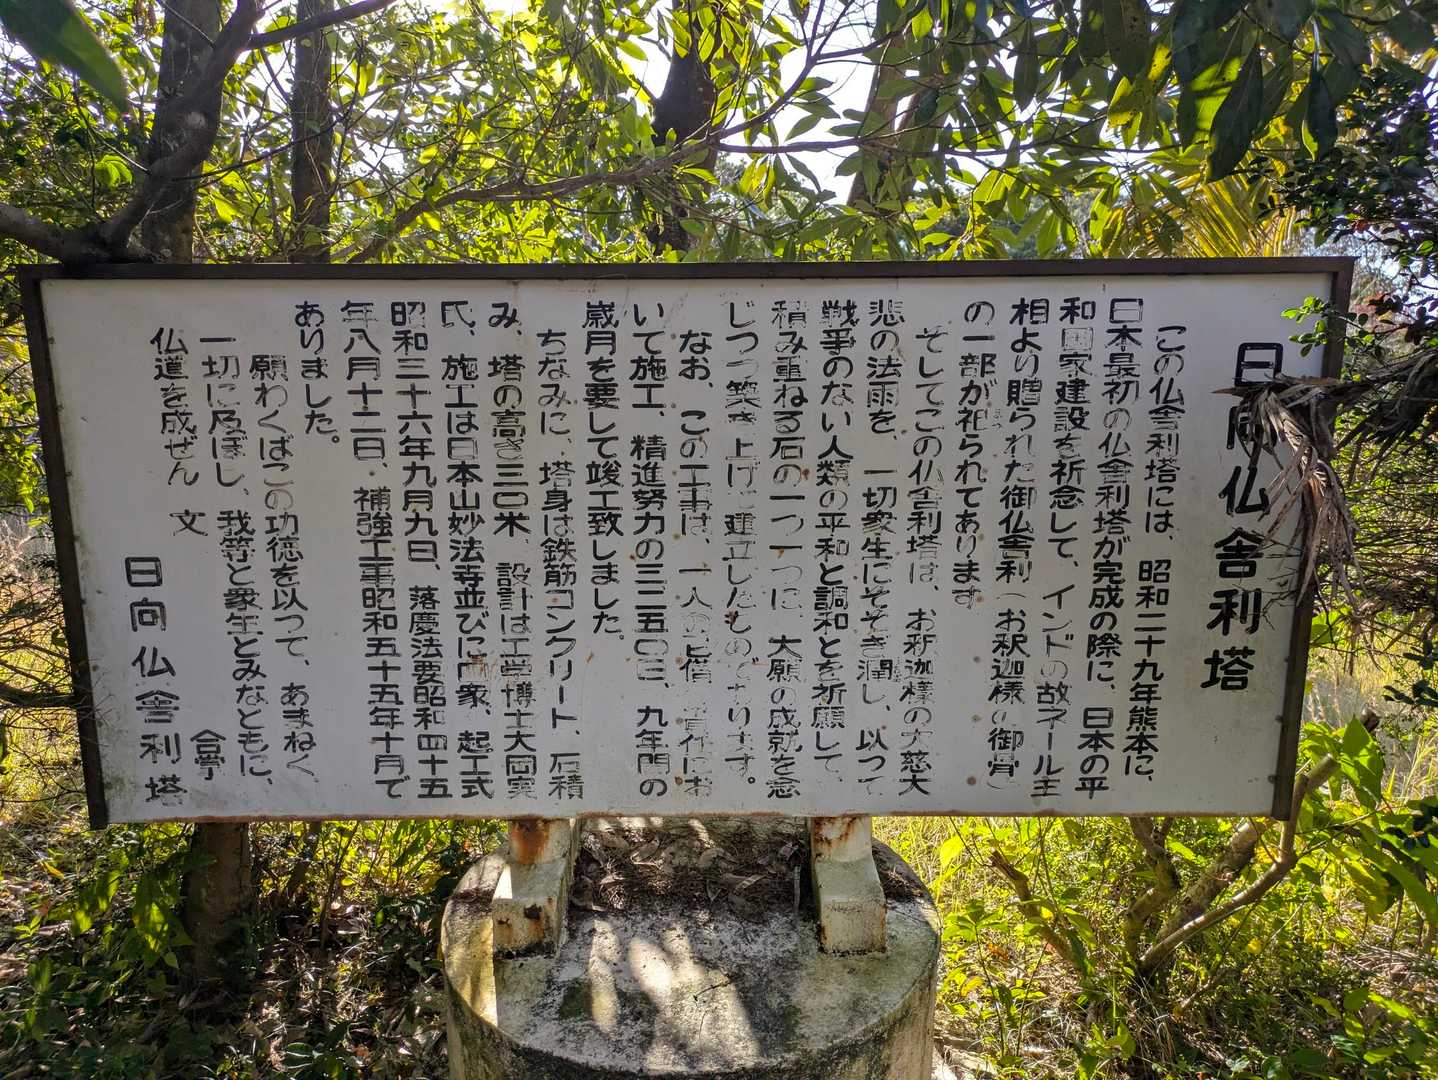 日向仏舎利塔
この仏舎利塔には、昭和二十九年熊本に、
日本最初の仏舎利塔が完成の際に、日本の平
和国家建設を祈念して、インドの故ネール主
相より贈られた御仏舎利（お釈迦様の御骨）
の一部が祀られてあります
そしてこの仏舎利塔は、お釈迦様の大慈大
悲の法雨を、一切衆生にそそぎ潤し、以つて
戦争のない人類の平和と調和とを祈願して、
積み重ねる石の一つ一つに、大願の成就を念
じつつ築き上げ建立したものであります。
なお、この工事は、一人の僧責任にお
いて施工、精進努力の三二五〇日、九年間の
歳月を要して竣工致しました。
ちなみに、塔身は鉄筋コンクリート、石積
み、塔の高さ三〇米　設計は工学博士大岡実
氏、施工は日本山妙法寺並びに国家、起工式
昭和三十六年九月九日、落慶法要昭和四十五
年八月十二日、補強工事昭和五十五年十月で
ありました。
願わくばこの功徳を以つて、あまねく
一切に及ぼし、我等と衆生とみなともに、
仏道を成ぜん　文　合掌
日向仏舎利塔